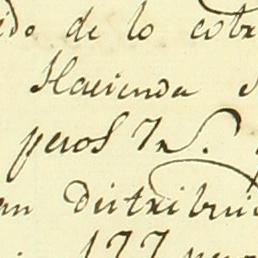 ido de lo cobr
Hacienda
pesos 7 rs.
an distribui
177 pesos